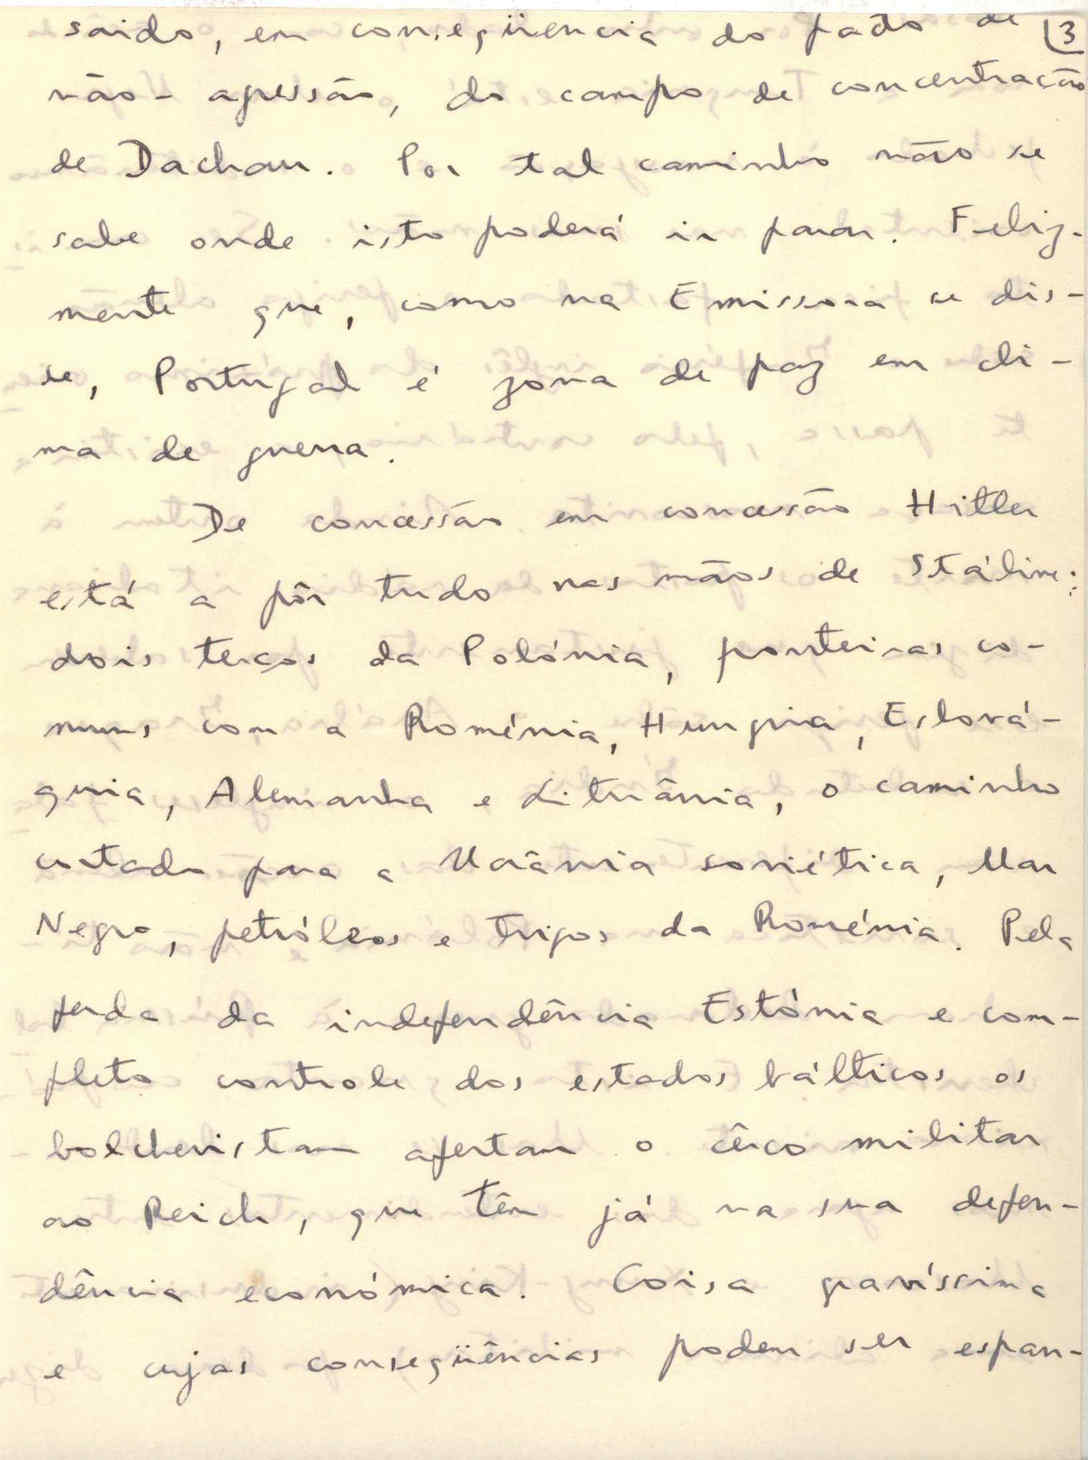 saido, em conseqüencia do pacto de 3
não-agressão, do campo de concentração
de Dachau. Por tal caminho não se
sabe onde isto poderá ir parar. Feliz-
mente que, como na Emissora se dis-
se, Portugal é zona de paz em cli-
ma de guerra.
De concessão em concessão Hitler
está a pôr tudo nas mãos de Stáline:
dois terços da Polónia, fronteiras co-
muns com a Roménia, Hungria, Eslová-
quia, Alemanha e Lituânia, o caminho
cortado para a Ucrânia soviética, Mar
Negro, petróleos e trigos da Roménia. Pela
perda da independência Estónia e com-
pleto controle dos estados bálticos os
bolchevistam apertam o cêrco militar
ao Reich, que têm já na sua depen-
dência económica. Coisa gravíssima
e cujas conseqüências podem ser espan-